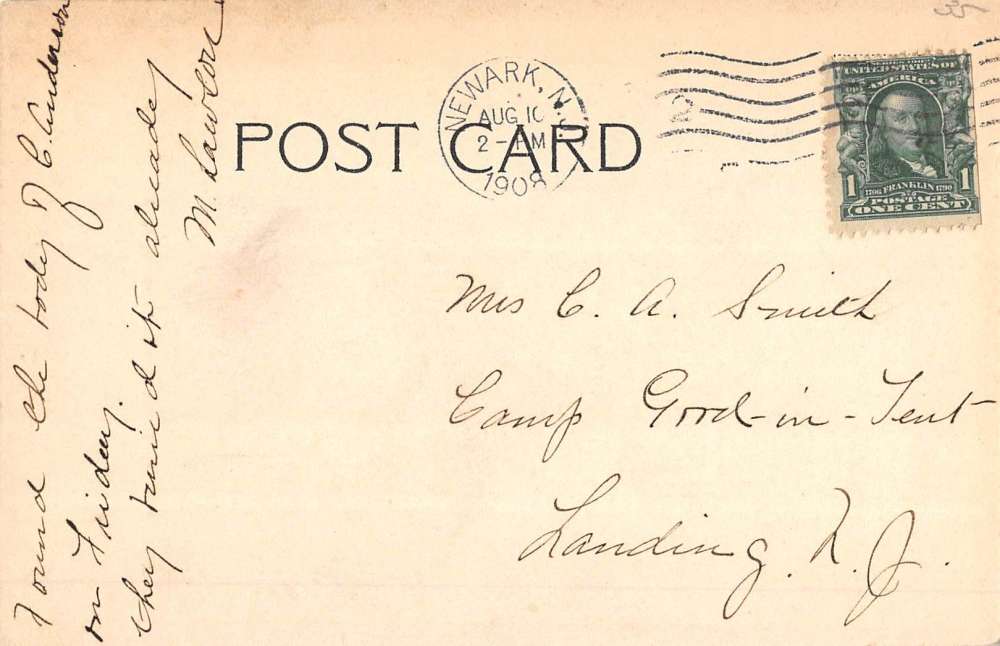 Found the body of C. Anderson
on Friday.
they buried it already
M. Lawlor
POST CARD
NEWARK, N.J.
AUG 10
2 - PM
1908
UNITED STATES OF
AMERICA
1 1706 FRANKLIN 1790 1
POSTAGE
ONE CENT
Mrs C. A. Smith
Camp Good-in-Tent
Landing. N. J.